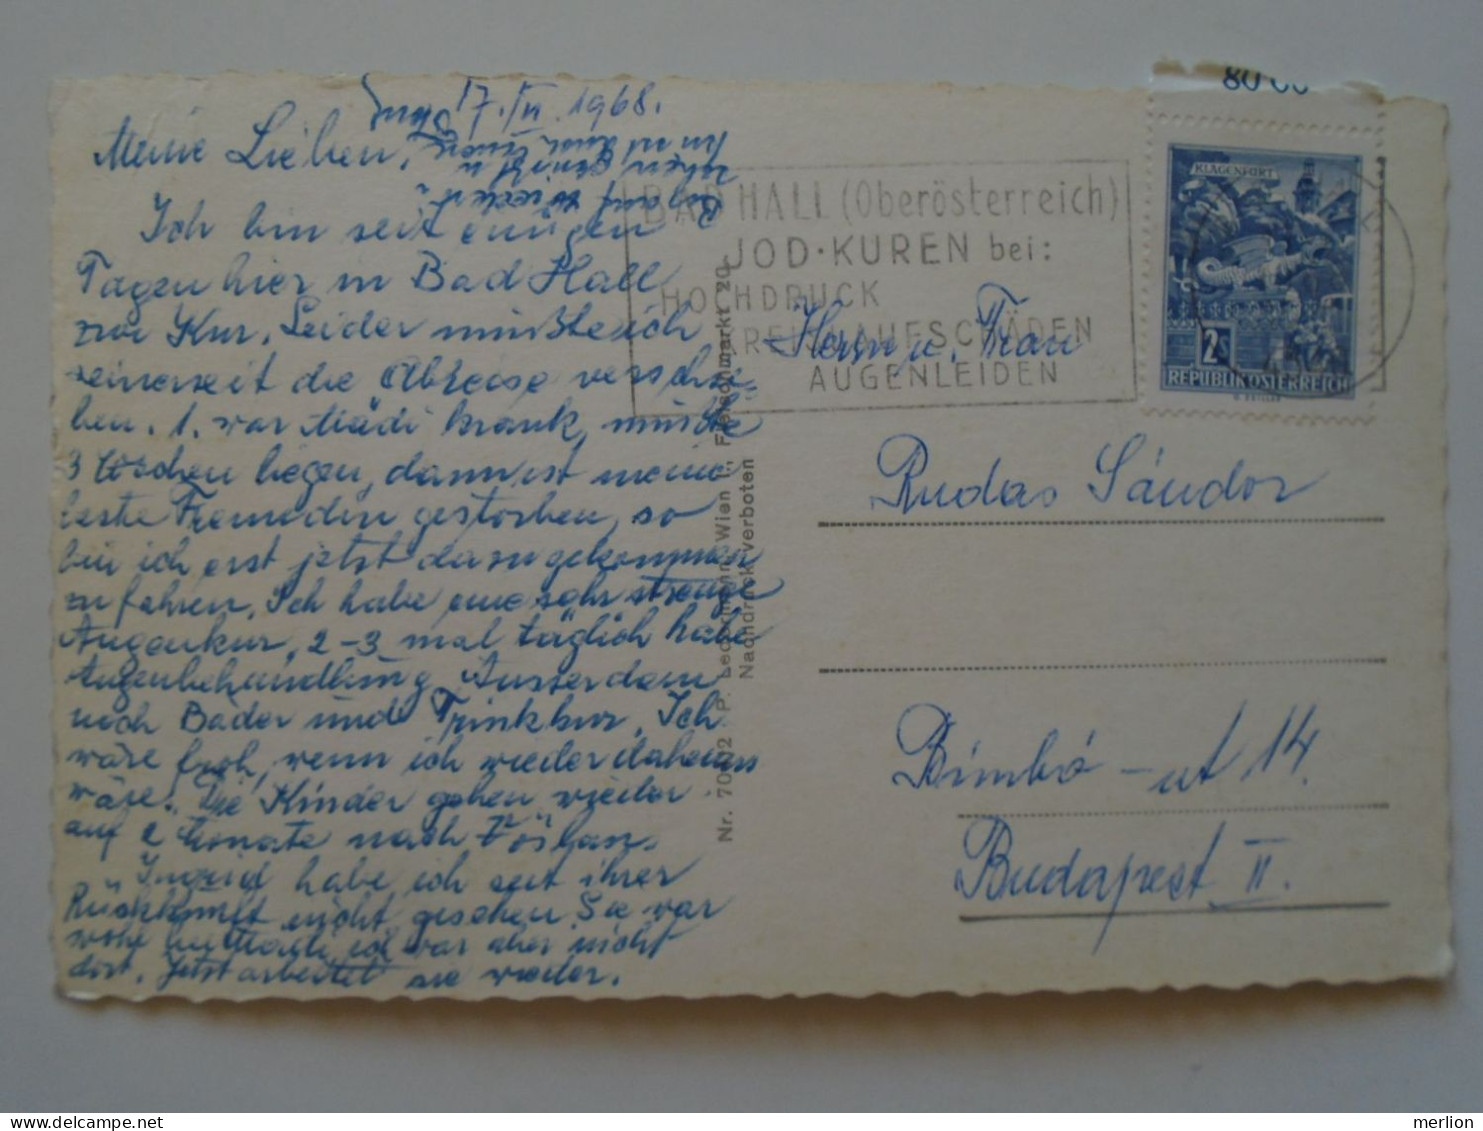 17. IV. 1968.
Meine Lieben,
Ich bin seit einigen
Tagen hier in Bad Hall
zur Kur. Leider mußte ich
seinerzeit die Abreise verschie-
ben. 1. war Mädi krank, mußte
3 Wochen liegen, dann ist meine
beste Freundin gestorben, so
bin ich erst jetzt dazugekommen
zu fahren. Ich habe eine sehr strenge
Augenkur, 2-3 mal täglich habe
Augenbehandlung, Ausserdem
noch Bäder und Trinkkur. Ich
wäre froh, wenn ich wieder daheim
wäre. Die Kinder gehen wieder
auf 2 Monate nach Vöslau.
Ingrid habe ich seit ihrer
Rückkunft nicht gesehen. Sie war
wohl ich war aber nicht
dort. Jetzt arbeitet sie wieder.
BAD HALL (Oberösterreich)
JOD·KUREN bei:
HOCHDRUCK
KREISLAUFSCHÄDEN
AUGENLEIDEN
KLAGENFURT
2S
REPUBLIK ÖSTERREICH
Herrn u. Frau
Rudas Sándor
Bimbó-ut 14.
Budapest II.
Nr. 70002 P. Ledermann, Wien I., Fleischmarkt 20
Nachdruck verboten
merlion